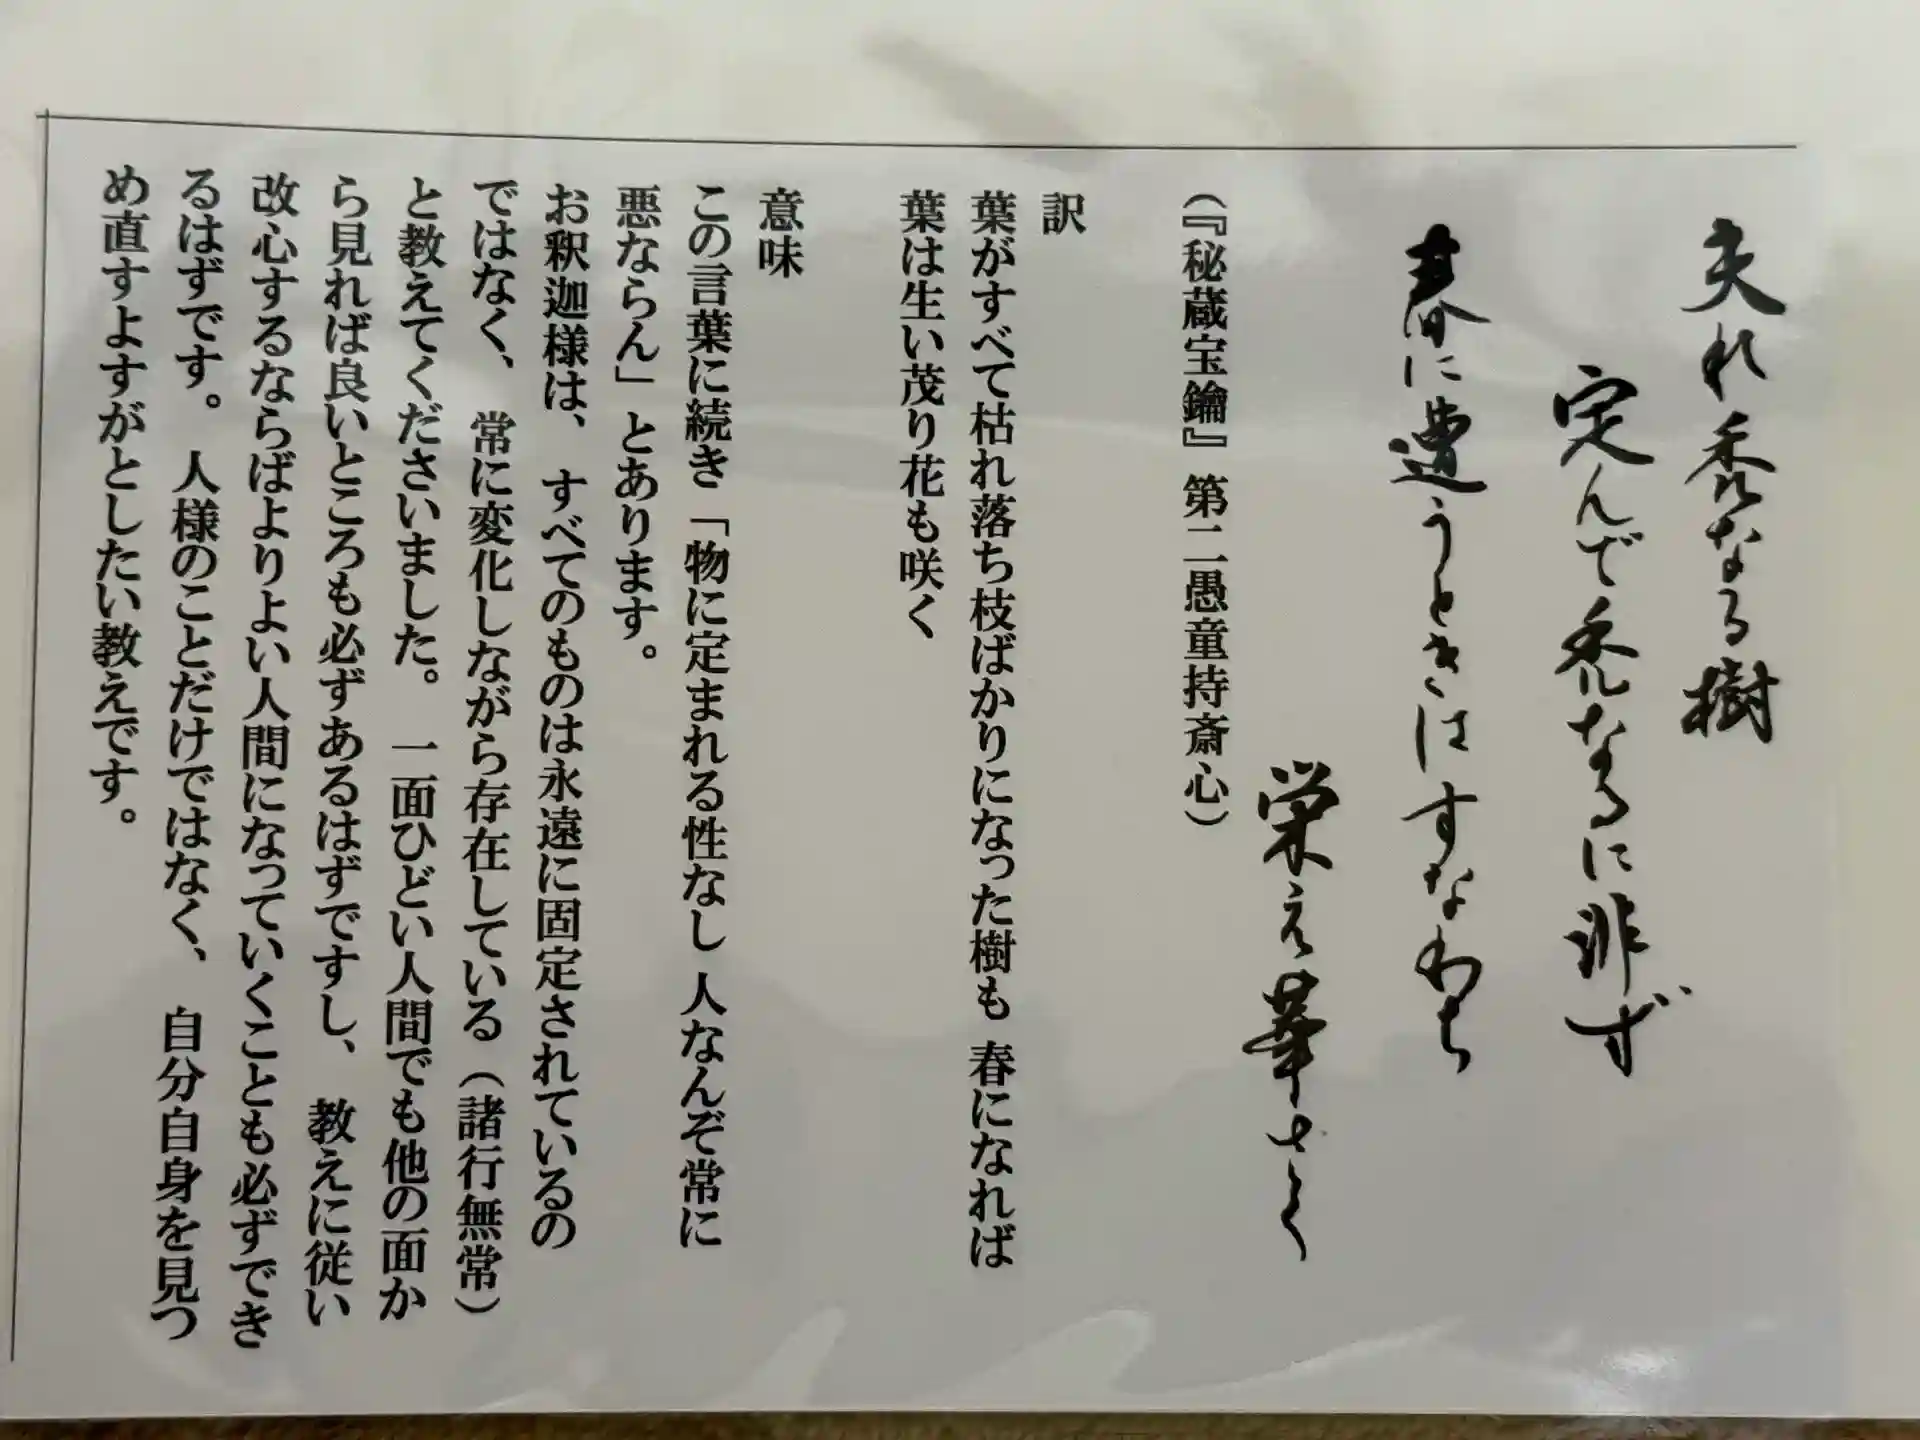 夫れ禿なる樹
定んで禿なるに非ず
春に遭うときはすなわち
栄え華さく
(『秘蔵宝鑰』第二愚童持斎心)
訳
葉がすべて枯れ落ち枝ばかりになった樹も 春になれば
葉は生い茂り花も咲く
意味
この言葉に続き「物に定まれる性なし 人なんぞ常に
悪ならん」とあります。
お釈迦様は、すべてのものは永遠に固定されているの
ではなく、常に変化しながら存在している(諸行無常)
と教えてくださいました。一面ひどい人間でも他の面か
ら見れば良いところも必ずあるはずですし、教えに従い
改心するならばよりよい人間になっていくことも必ずでき
るはずです。人様のことだけではなく、自分自身を見つ
め直すよすがとしたい教えです。